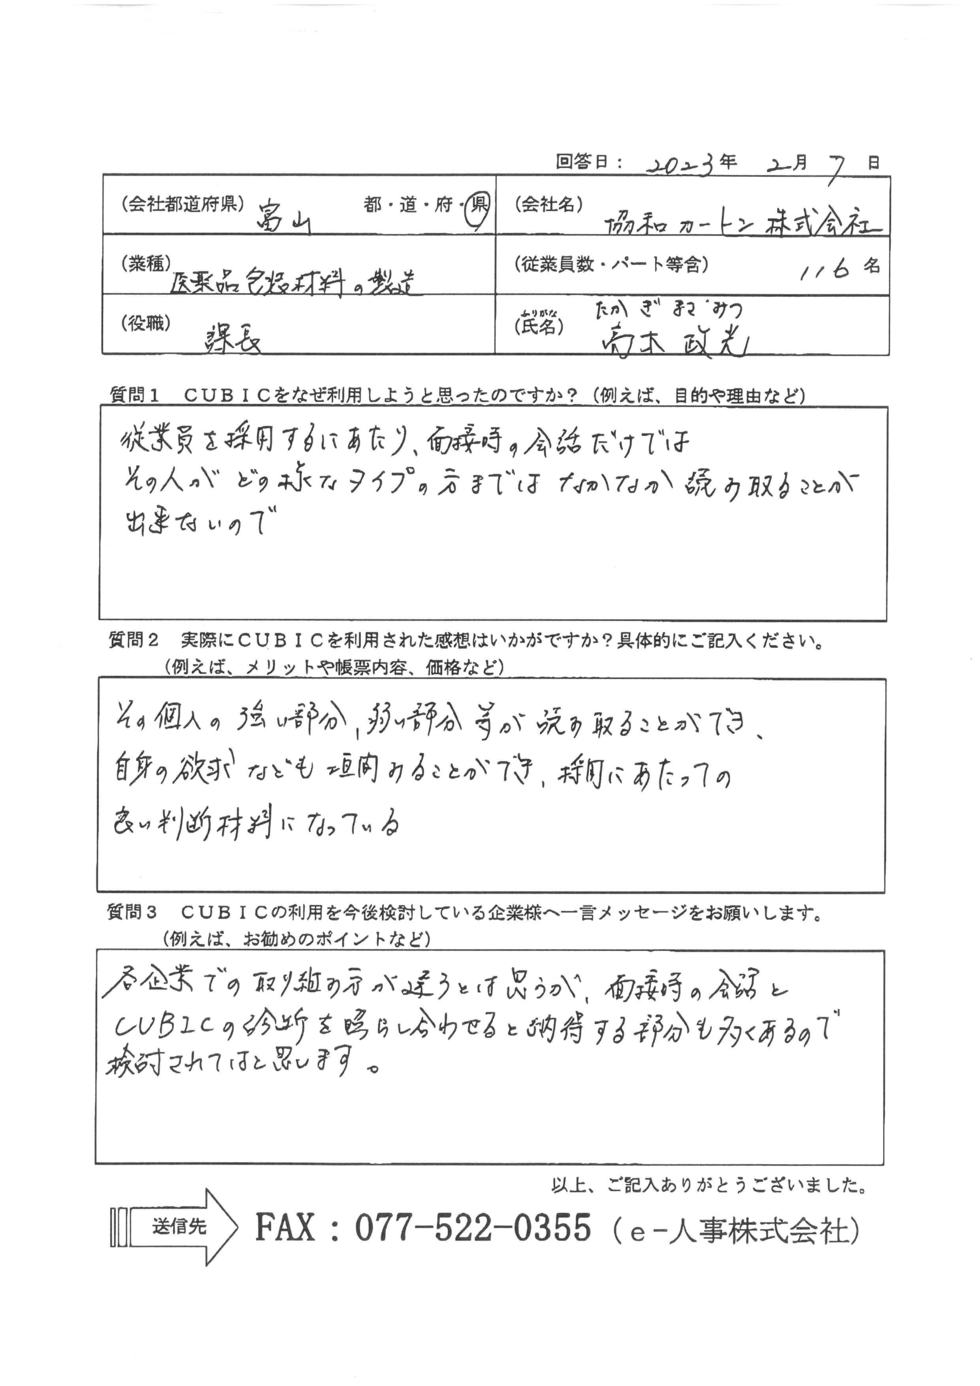 回答日： 2023年 2月 7日
（会社都道府県） 富山 都・道・府・県
（会社名） 協和カートン株式会社
（業種） 医薬品包装材料の製造
（従業員数・パート等含） 116名
（役職） 課長
ふりがな たかぎ まさみつ
（氏名） 高木 政光
質問１ ＣＵＢＩＣをなぜ利用しようと思ったのですか？（例えば、目的や理由など）
従業員を採用するにあたり、面接時の会話だけでは
その人がどの様なタイプの方までは なかなか読み取ることが
出来ないので
質問２ 実際にＣＵＢＩＣを利用された感想はいかがですか？具体的にご記入ください。
（例えば、メリットや帳票内容、価格など）
その個人の強い部分、弱い部分等が読み取ることができ、
自身の欲求なども垣間みることができ、採用にあたっての
良い判断材料になっている
質問３ ＣＵＢＩＣの利用を今後検討している企業様へ一言メッセージをお願いします。
（例えば、お勧めのポイントなど）
各企業での取り組み方が違うとは思うが、面接時の会話と
CUBICの診断を照らし合わせると納得する部分も多くあるので
検討されてはと思います。
以上、ご記入ありがとうございました。
送信先 FAX：077-522-0355（e-人事株式会社）